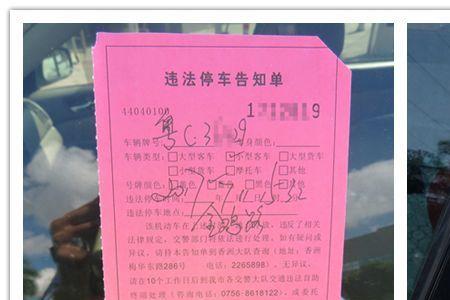 违法停车告知单
44040100 1 9
车辆牌号: 粤C·3 9 车身颜色:
车辆类型: □大型客车 ☑小型客车 □大型货车
□小型货车 □摩托车 □其他
号牌颜色: □黄色 □蓝色 □黑色 □其他
违法停车时间:
违法停车地点: 路
该机动车在 违反了相关
法律规定,交警部门将依法进行处理。如有疑问或
异议,请持本告知单到香洲大队查询(地址:香洲
梅华东路286号 电话:2265898)。无异议,
请在10个工作日后到我市各交警大队交通违法自助
终端处理(咨询电话:0756-8618122)或委托